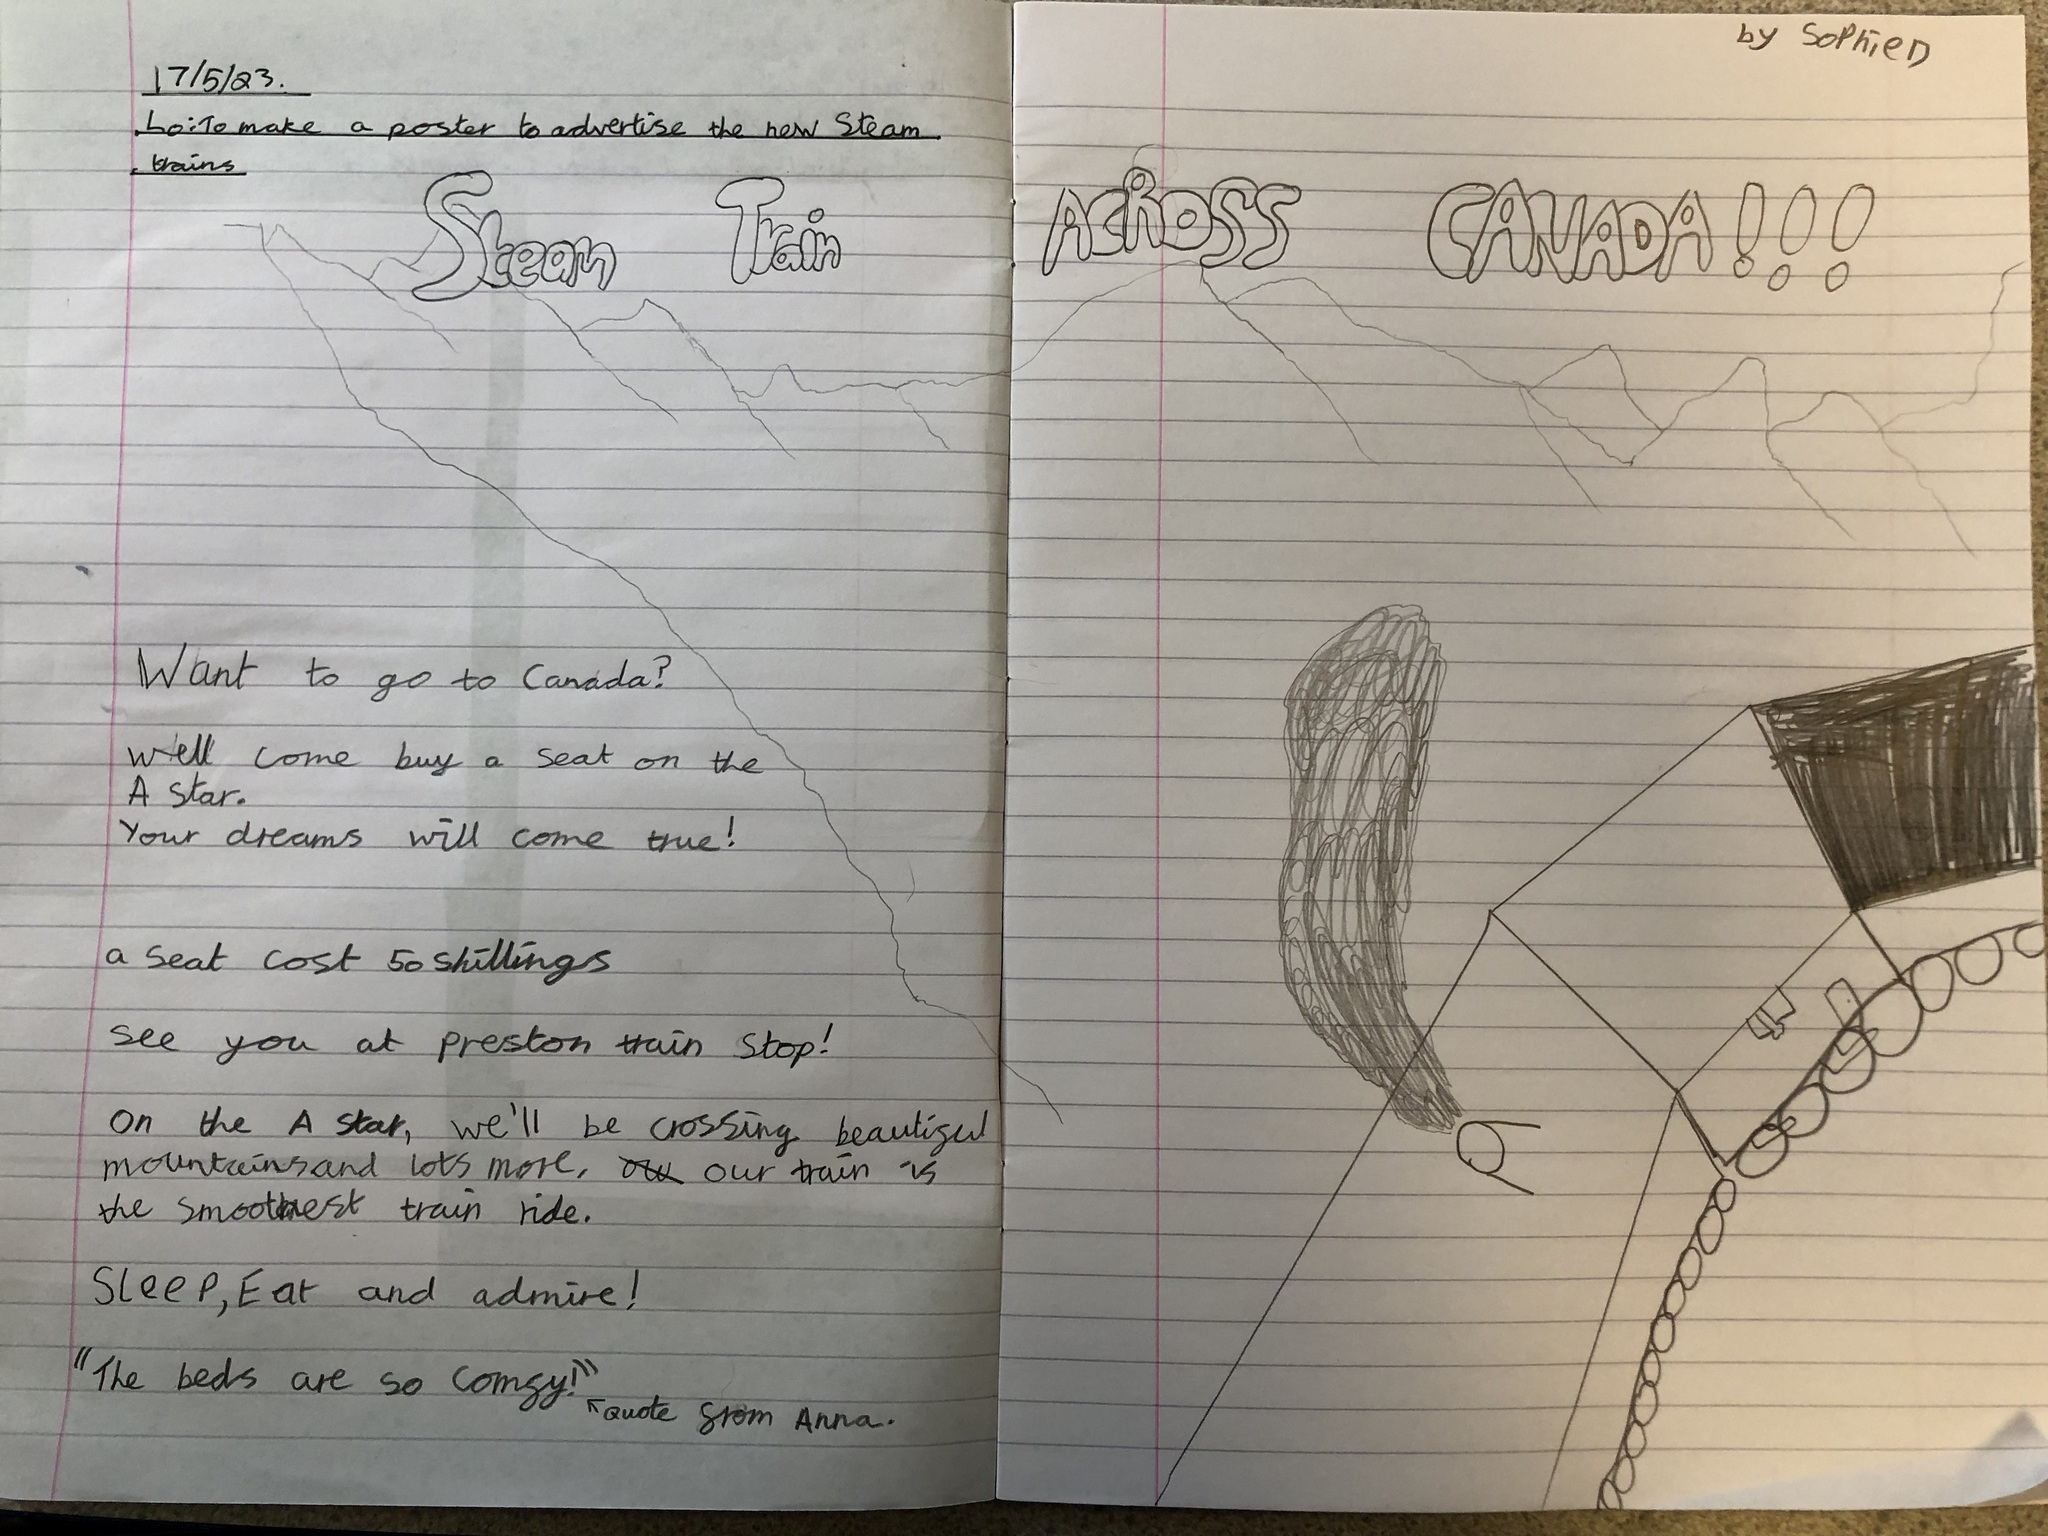 by SophieD
17/5/23.
Lo: To make a poster to advertise the new Steam
trains
Steam Train ACROSS CANADA!!!
Want to go to Canada?
Well come buy a seat on the
A star.
Your dreams will come true!
a seat cost 50 shillings
see you at preston train stop!
On the A star, we'll be crossing beautiful
mountains and lots more, our train is
the smoothest train ride.
Sleep, Eat and admire!
"The beds are so comfy!"
quote from Anna.